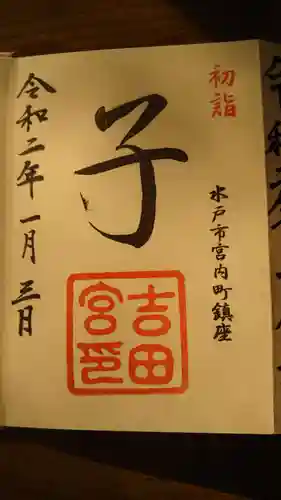 初詣
水戸市宮内町鎮座
子
吉田
宮印
令和二年一月三日